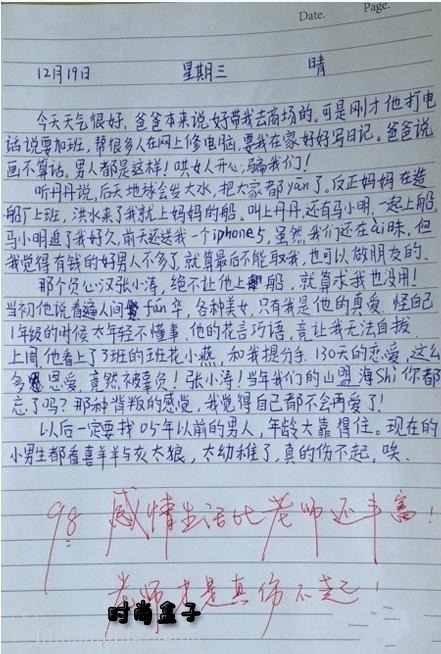 Date.
Page.
12月19日 星期三 晴
今天天气很好，爸爸本来说好带我去商场的。可是刚才他打电
话说要加班，帮很多人在网上修电脑，要我在家好好写日记。爸爸说
画不算话，男人都是这样！哄女人开心，骗我们！
听丹丹说，后天地球会发大水，把大家都yān了。反正妈妈在造
船厂上班，洪水来了我就上妈妈的船。叫上丹丹，还有马小明，一起上船，
马小明追了我好久，前天还送我一个iphone5，虽然我们还在ài昧，但
我觉得有钱的好男人不多了，就算最后不能取我，也可以做朋友的。
那个负心汉张小涛，绝不让他上船，就算求我也没用！
当初他说看遍人间fán华，各种美女，只有我是他的真爱。怪自己
1年级的时候太年轻不懂事，他的花言巧语，竟让我无法自拔。
上周他看上了3班的班花小燕，和我提分手。130天的恋爱，这么
多恩爱，竟然被辜负！张小涛！当年我们的山盟海Shì你都
忘了吗？那种背叛的感觉，我觉得自己都不会再爱了！
以后一定要找05年以前的男人，年龄大靠得住。现在的
小男生都看喜羊羊与灰太狼，太幼稚了，真的伤不起。唉。
98 感情生活比老师还丰富！
老师才是真伤不起！
时尚盒子